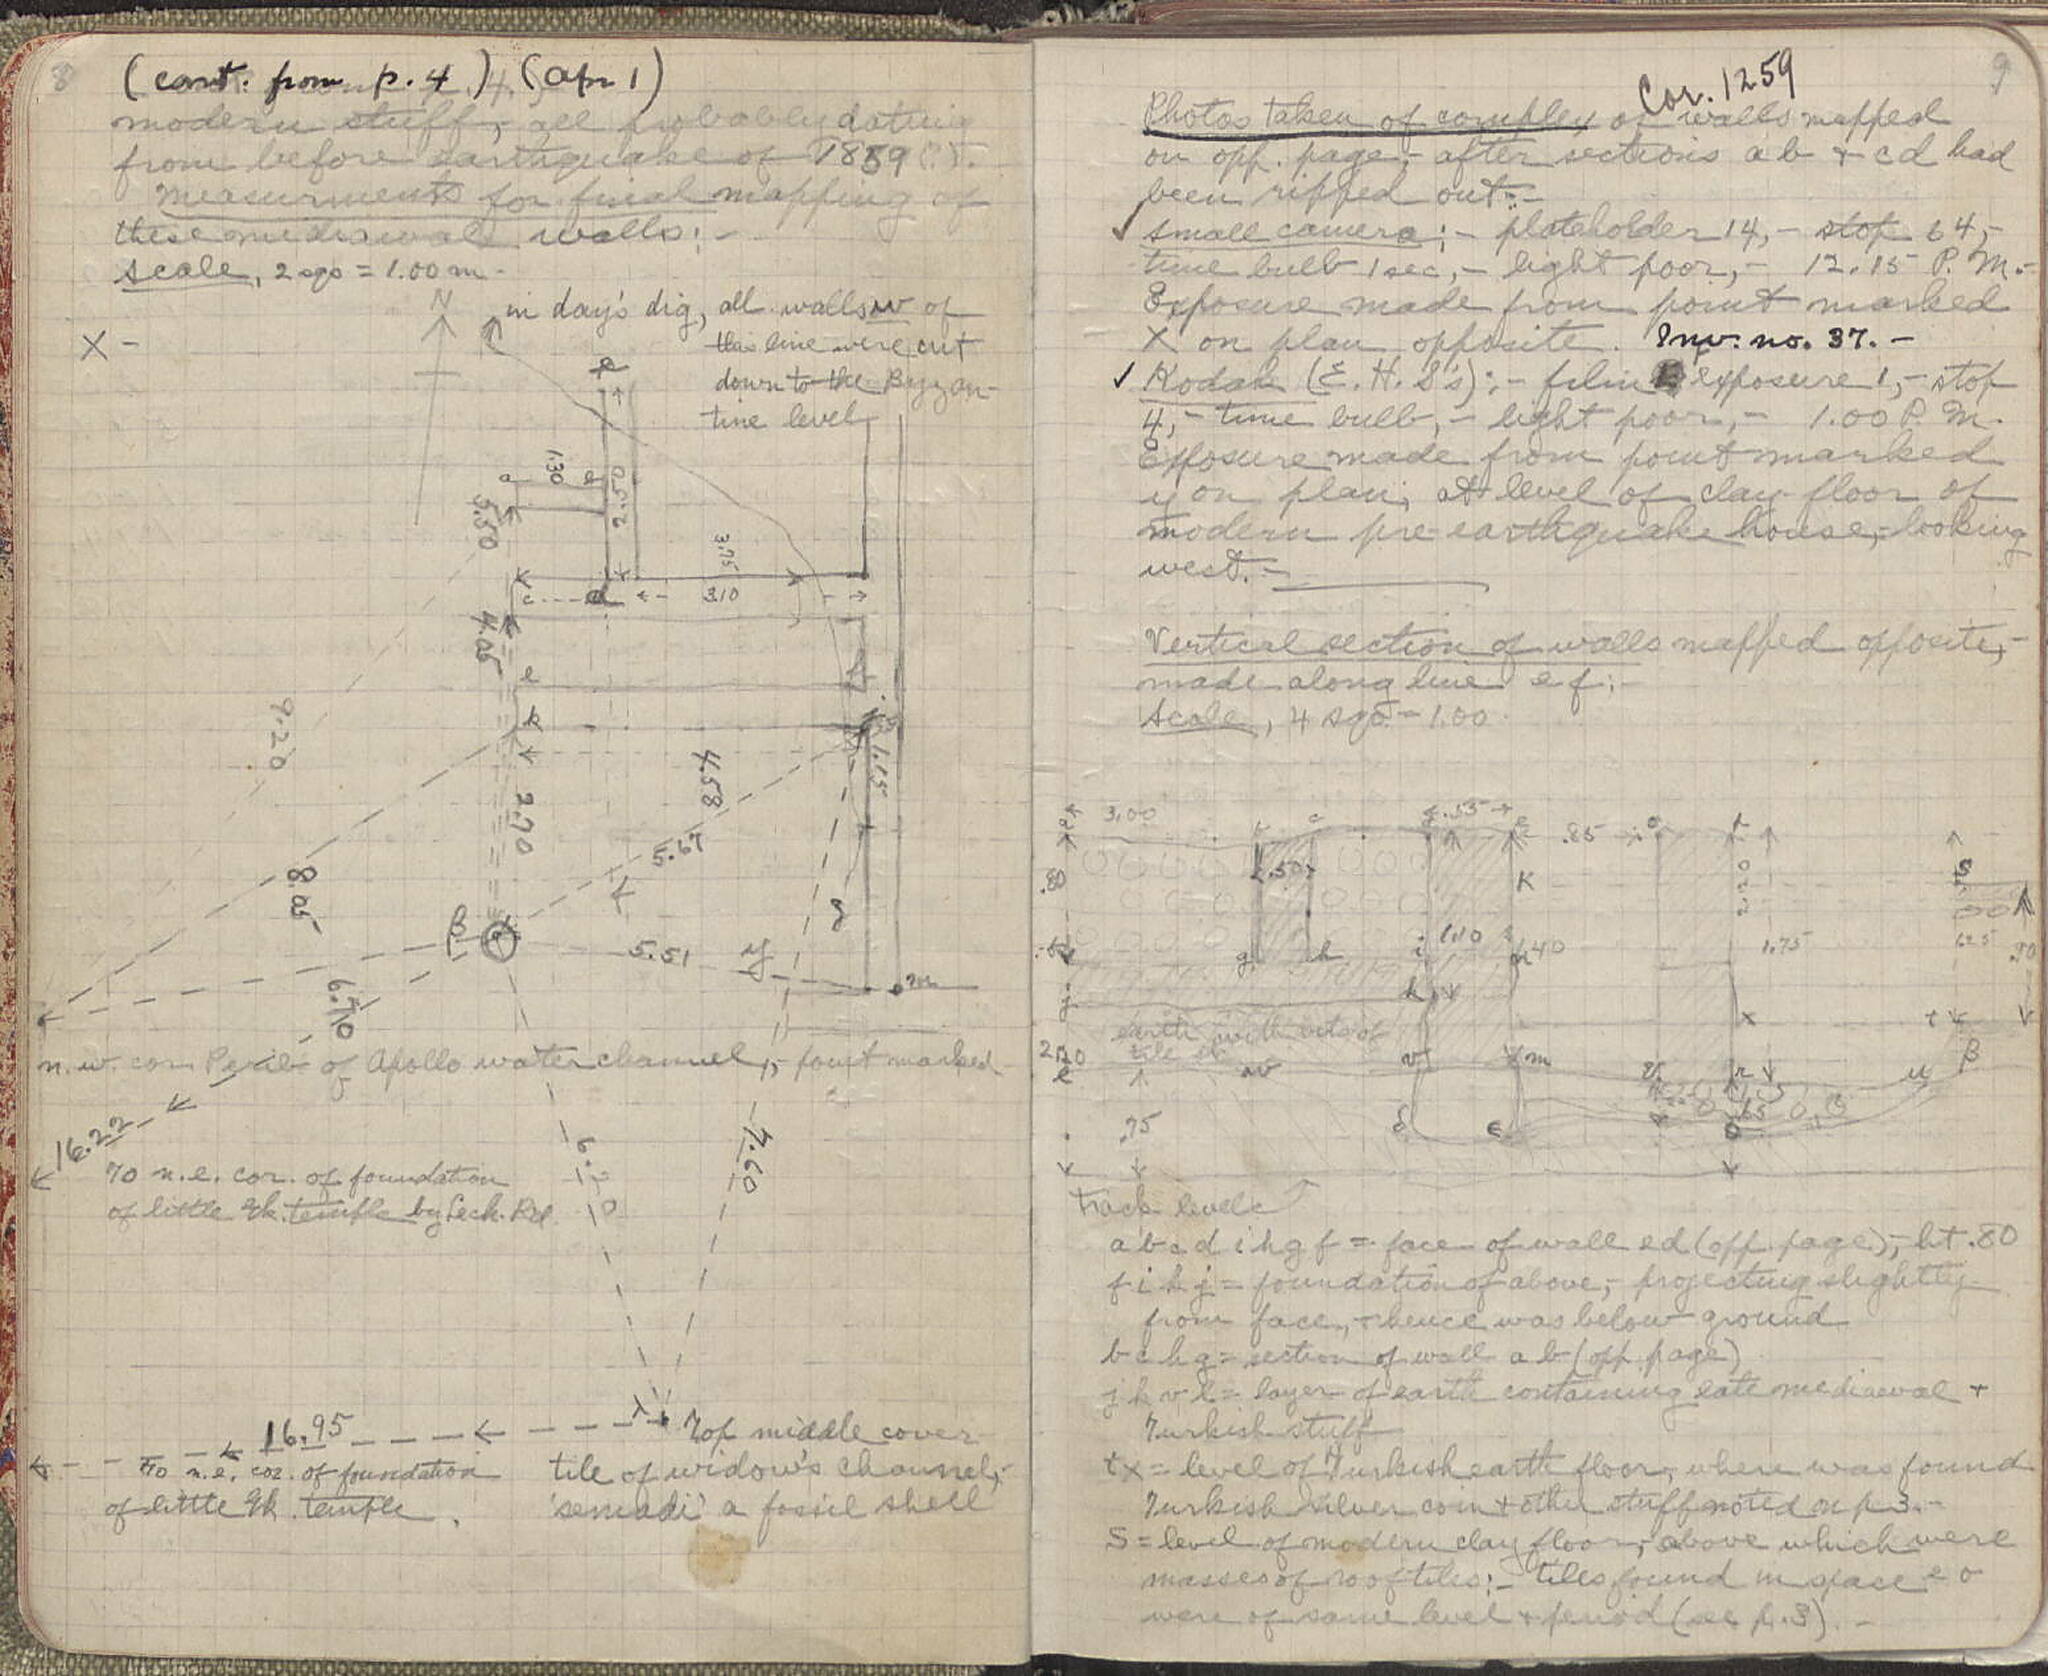 8
(cont. from p. 4) (Apr 1)
modern stuff, - all probably dating
from before earthquake of 1859 (?).
Measurments for final mapping of
these mediaeval walls: -
scale, 2 sqs = 1.00 m -
N
in day's dig, all walls w of
this line were cut
down to the Byzan-
tine level
X -
1.30
a
b
2.50
5.50
3.75
c
d
3.10
4.05
e
f
k
9.20
4.58
1.15
2.70
5.67
8.05
β
5.51
y
m
6.70
n.w. cor. Perib. of Apollo water channel, - point marked
16.22
To n.e. cor. of foundation
of little Gk. temple by Lech. Rd.
7.60
6.10
16.95
Top middle cover
To n.e. cor. of foundation
tile of widow's channel, -
of little Gk. temple.
'semadi' a fossil shell
9
Cor. 1259
Photos taken of complex of walls mapped
on opp. page, - after sections a b + c d had
been ripped out: -
✓ small camera: - plateholder 14, - stop 64, -
time bulb 1 sec, - light poor, - 12.15 P.M. -
Exposure made from point marked
X on plan opposite. Inv. no. 37. -
✓ Kodak (E.H.S's): - film exposure 1, - stop
4, - time bulb, - light poor, - 1.00 P.M.
Exposure made from point marked
y on plan, at level of clay floor of
modern pre-earthquake house, - looking
west. -
Vertical section of walls mapped opposite, -
made along line e f: -
Scale, 4 sqs = 1.00
3.00
.55
.85
.80
.50
K
2.20
S
1.10
.40
1.75
.625
.90
g
h
i
earth with bits of
tile etc
w
v
m
u
β
.75
δ
ε
.65
track level
a b c d i h g f = face of wall e d (opp. page), - ht .80
f i k j = foundation of above, - projecting slightly
from face, - hence was below ground
b c h g = section of wall a b (opp. page)
j k v l = layer of earth containing late mediaeval +
Turkish stuff
t x = level of Turkish earth floor, where was found
Turkish silver coin + other stuff noted on p 3. -
S = level of modern clay floor, - above which were
masses of rooftiles: - tiles found in space e o
were of same level + period (see p. 3). -